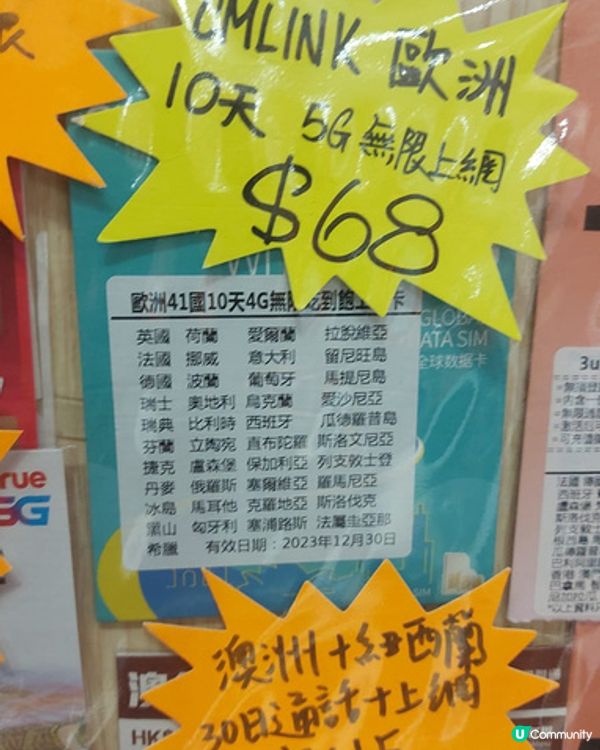 UMLINK 歐洲
10天 5G無限上網
$68
歐洲41國10天4G無限吃到飽上
卡
GLOBAL
DATA SIM
全球数据卡
英國 荷蘭 愛爾蘭 拉脫維亞
法國 挪威 意大利 留尼旺島
德國 波蘭 葡萄牙 馬提尼島
瑞士 奧地利 烏克蘭 愛沙尼亞
瑞典 比利時 西班牙 瓜德羅普島
芬蘭 立陶宛 直布陀羅 斯洛文尼亞
捷克 盧森堡 保加利亞 列支敦士登
丹麥 俄羅斯 塞爾維亞 羅馬尼亞
冰島 馬耳他 克羅地亞 斯洛伐克
黑山 匈牙利 塞浦路斯 法屬圭亞那
希臘 有效日期：2023年12月30日
True
5G
3u
法國 德
西班牙
盧森堡
斯洛伐
列支敦
瓜德羅
澳洲+紐西蘭
30日通話+上網
澳
HK$
SIM
U Community